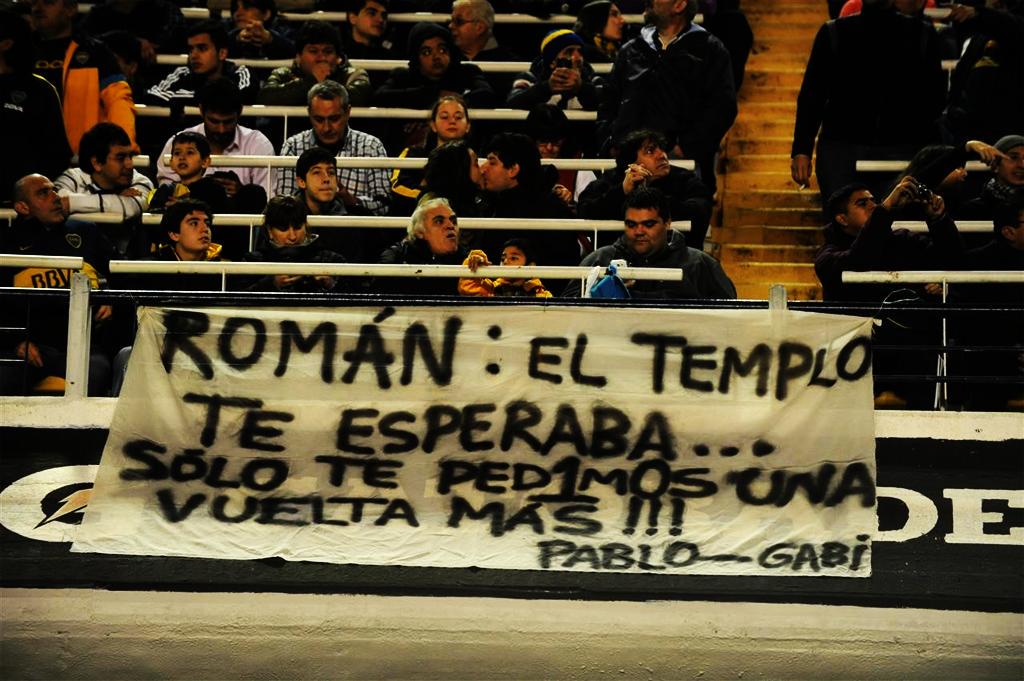 ROMÁN: EL TEMPLO
TE ESPERABA...
SÓLO TE PED1MOS UNA
VUELTA MÁS!!!
PABLO—GABi
DE
BBVA